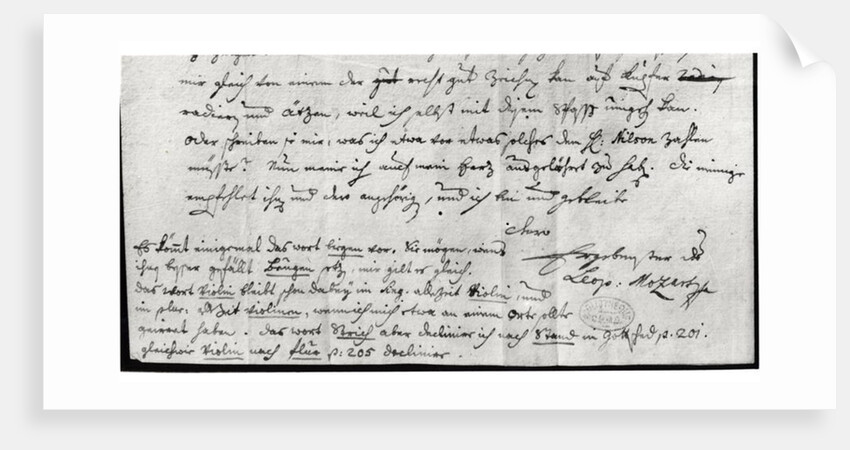 mir gleich von einem der gut recht gut Zeichn kan auf Kupfer
radieren und ätzen, weil ich selbst mit diesem Spass umgehen kan.
oder schreiben sie mir, was ich etwa vor etwas solches dem H: Nilson zahlen
müsste? Nun meine ich auch mein Herz ausgeleert zu haben. Die meinige
empfehlet ihnen und dero angehörige, und ich bin und gebleibe
dero
Ergebenster
Leop: Mozart
Es kömmt einigemal das wort biegen vor. Sie mögen, wenns
ihnen besser gefällt Beugen setzen, mir gilt es gleich.
das wort Violin bleibt schon dabey im sing. allzeit Violin, und
im plur: allzeit Violinen, wenn ich mich etwa an einem Orte sollte
geirret haben. das wort Strich aber decliniere ich nach Stand in Gottsched p. 201.
gleichwie Violin nach flur p: 205 decliniere.